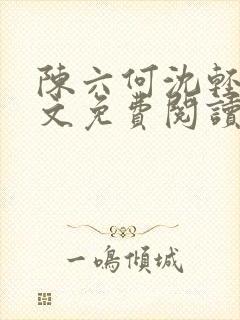 陳六何沈輕
文免費閱讀
一鳴傾城